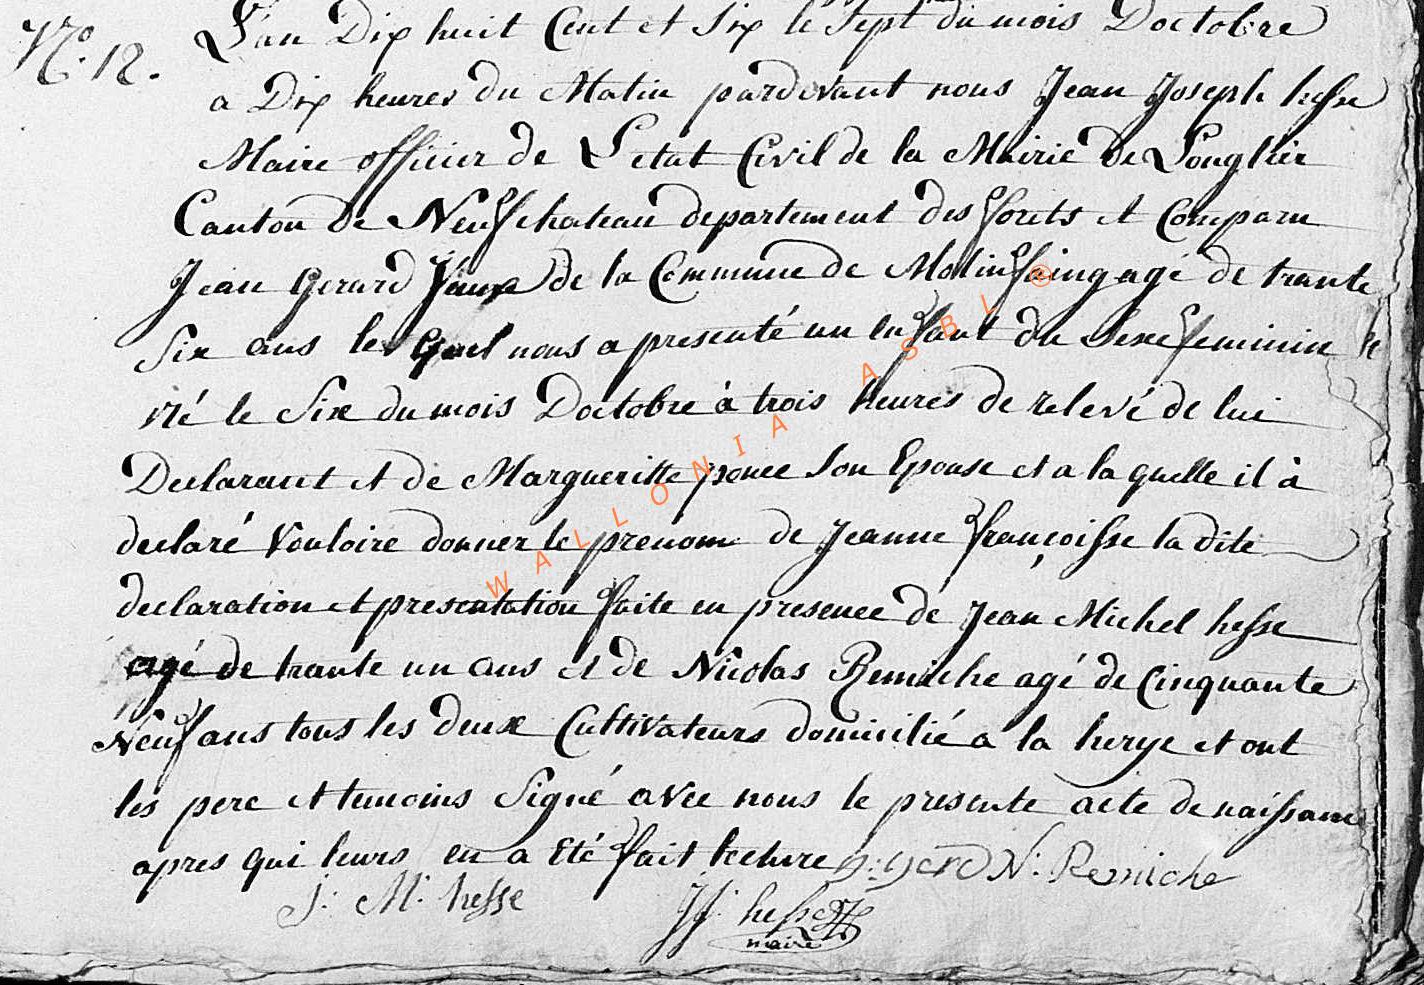 No. 12.
L'an Dix huit Cent et Six le Sept du mois Doctobre
a Dix heures du Matin pardevant nous Jean Joseph hesse
Maire officier de L'etat Civil de la Mairie de Longlier
Canton de Neufchateau departement des forets et Comparu
Jean Gerard de la Commune de Molinfaing agé de trante
Six ans le quel nous a presenté un enfant du Sexe feminin
né le Six du mois Doctobre à trois heures de relevé de lui
Declarant et de Margueritte ponce Son Epouse et a la quelle il à
declaré Vouloire donner le prenom de Jeanne françoisse la dite
declaration et presentation faite en presence de Jean Michel hesse
agé de trante un ans et de Nicolas Remiche agé de Cinquante
Neuf ans tous les deux Cultivateurs domicilié a la herye et ont
les pere et temoins Signé avec nous le presente acte de naissance
apres qui leurs en a Eté fait lecture N: Remiche
J: M: hesse JJ: hesse
maire
WALLONIA ASBL ®